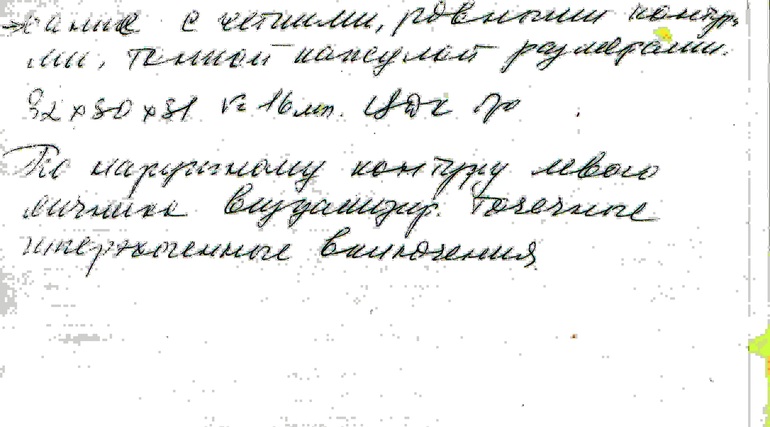 с четкими, ровными контура
ми, тонкой капсулой размерами
32 х 30 х 31 V= 16 мл. ЦДК
По наружному контуру левого
яичника визуализир. точечные
гиперэхогенные включения